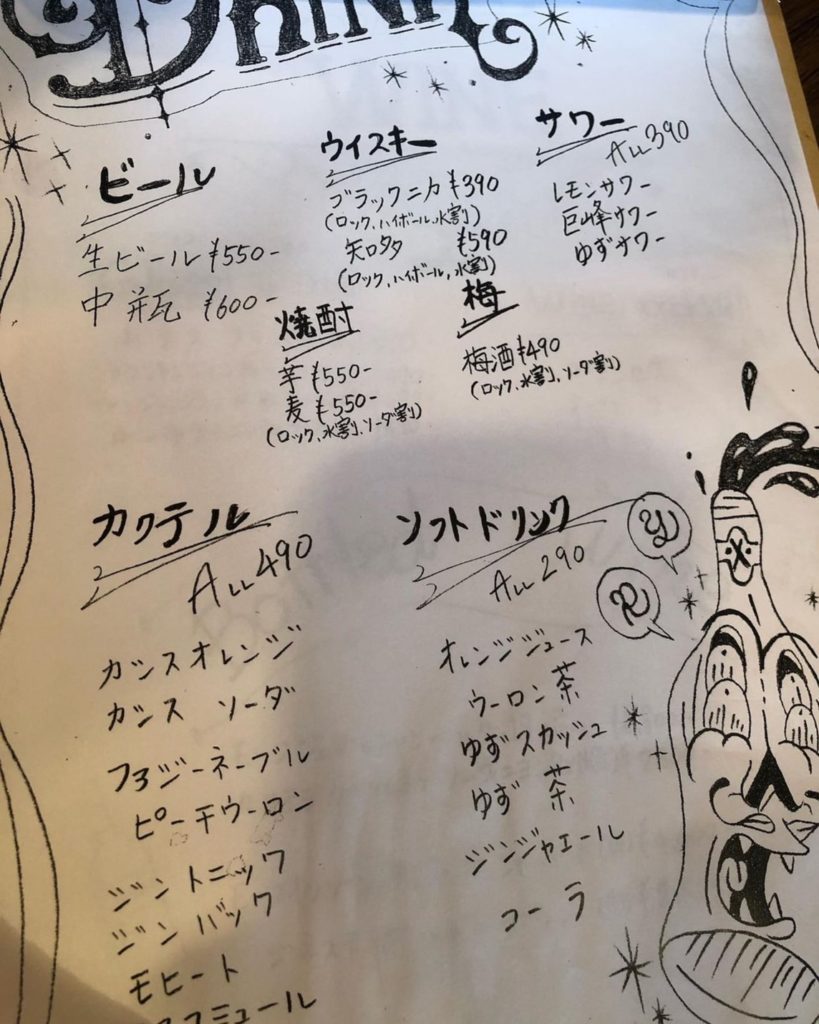 DRINK
ビール
生ビール ¥550-
中瓶 ¥600-
ウイスキー
ブラックニカ ¥390
(ロック、ハイボール、水割)
知多 ¥590
(ロック、ハイボール、水割)
サワー
ALL 390
レモンサワー
巨峰サワー
ゆずサワー
焼酎
芋 ¥550-
麦 ¥550-
(ロック、水割、ソーダ割)
梅
梅酒 ¥490
(ロック、水割、ソーダ割)
カクテル
ALL 490
カシスオレンジ
カシス ソーダ
ファジーネーブル
ピーチウーロン
ジントニック
ジンバック
モヒート
スコミュール
ソフトドリンク
ALL 290
オレンジジュース
ウーロン茶
ゆずスカッシュ
ゆず茶
ジンジャエール
コーラ